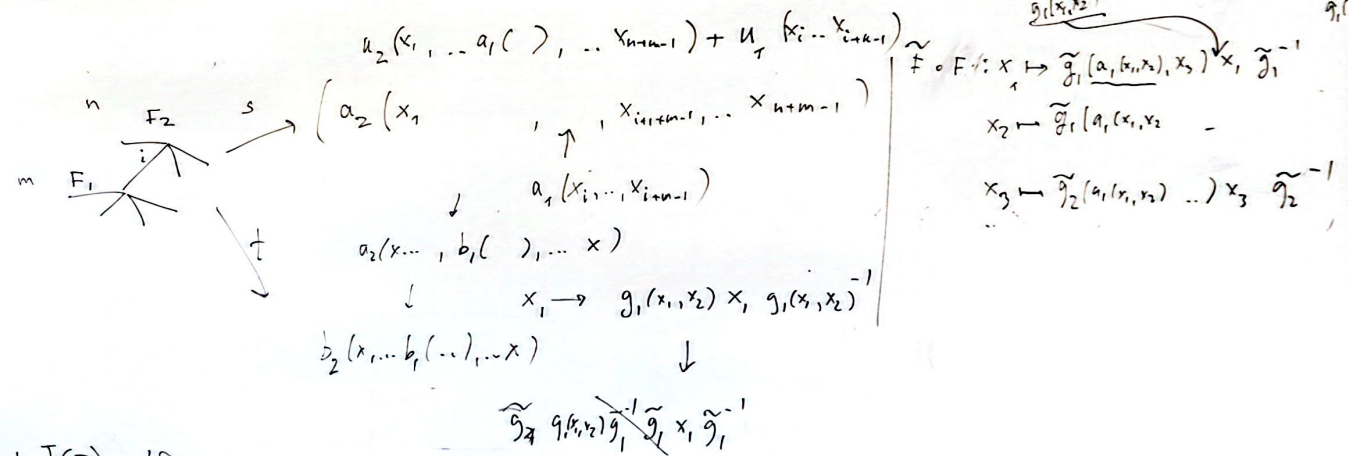 u₂(x₁, ... a₁( ), .. x_{n+m-1}) + u₁(x_i .. x_{i+n-1})
n
F₂
s
(a₂(x₁ , , x_{i+1+n-1}, .. x_{n+m-1})
i
↑
m
F₁
a₁(x_i, .., x_{i+n-1})
↓
t
a₂(x... , b₁( ), ... x)
↓
x₁ → g₁(x₁, x₂) x₁ g₁(x₁, x₂)⁻¹
b₂(x, ... b₁(..), .. x)
↓
g₁(x₁, x₂) g̃₁⁻¹ g̃₁ x₁ g̃₁⁻¹
g₁(x₁, x₂)
g₁(
F̃ ∘ F : x₁ ↦ g̃₁(a₁(x₁, x₂), x₃) x₁ g̃₁⁻¹
x₂ ↦ g̃₁(a₁(x₁, x₂ -
x₃ ↦ g̃₂(a₁(x₁, x₂) ..) x₃ g̃₂⁻¹